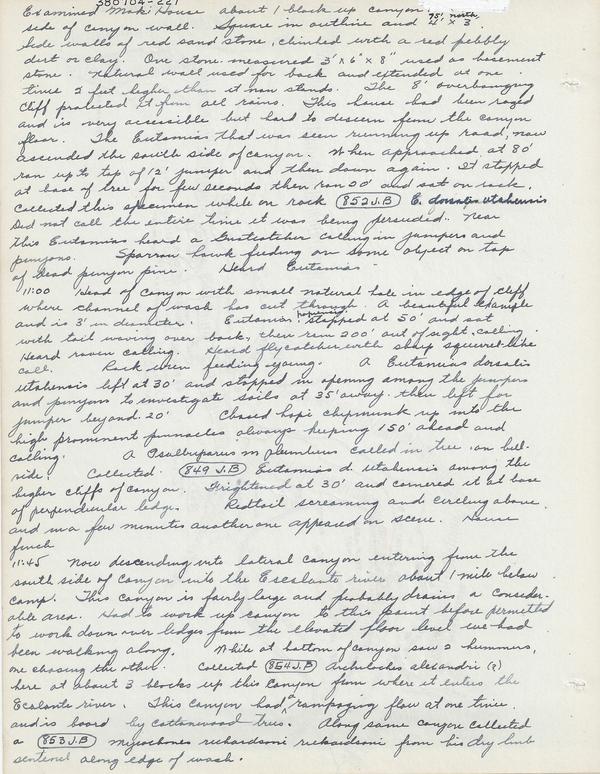 380704-221
Examined Moki House about 1 block up canyon 75' north
side of canyon wall. Square in outline and 4' x 3'
Side walls of red sand stone, chinked with a red pebbly
dirt or clay. One stone measured 3' x 6" x 8" used as basement
stone. Natural wall used for back and extended at one
time 2 feet higher than it now stands. The 8' overhanging
cliff protected it from all rains. This house had been razed
and is very accessible but hard to discern from the canyon
floor. The Eutamias that was seen running up road, now
ascended the south side of canyon. When approached at 80'
ran up to top of 12' juniper and then down again. It stopped
at base of tree for few seconds then ran 20' and sat on rock.
Collected this specimen while on rock (852 J.B) E. dorsalis utahensis
Did not call the entire time it was being persuded. Near
this Eutamias heard a Gnatcatcher calling in junipers and
pinyons. Sparrow hawk feeding on some object on top
of dead pinyon pine. Heard Eutamias
11:00 Head of Canyon with small natural hole in edge of cliff
where channel of wash has cut through. A beautiful example
and is 3' in diameter. Eutamias stopped at 50' and sat
with tail waving over back, then ran 200' out of sight, calling.
Heard raven calling. Heard flycatcher with sharp squirrel-like
call. Rock wren feeding young. A Eutamias dorsalis
utahensis left at 30' and stopped in opening among the junipers
and pinyons to investigate soils at 35' away. then left for
juniper beyond 20' Chased hopi chipmunk up into the
high prominent pinnacles always keeping 150' ahead and
calling. A Psaltriparus m plumbeus called in tree on hill-
side. Collected (849 J.B) Eutamias d. utahensis among the
higher cliffs of canyon. Frightened at 30' and cornered it at base
of perpendicular ledge. Redtail screaming and circling above
and in a few minutes another one appeared on scene. House
finch
11:45 Now descending into lateral canyon entering from the
south side of canyon into the Escalante river about 1 mile below
camp. This canyon is fairly large and probably drains a consider-
able area. Had to work up canyon to this point before permitted
to work down over ledges from the elevated floor level we had
been walking along. While at bottom of canyon saw 2 hummers,
one chasing the other. Collected (854 J.B) Archilochus alexandri (?)
here at about 3 blocks up this canyon from where it enters the
Escalante river. This canyon had a rampaging flow at one time
and is board by cottonwood trees. Along same canyon collected
a (853 J.B) myiochanes richardsoni richardsoni from his dry limb
sentinel along edge of wash.